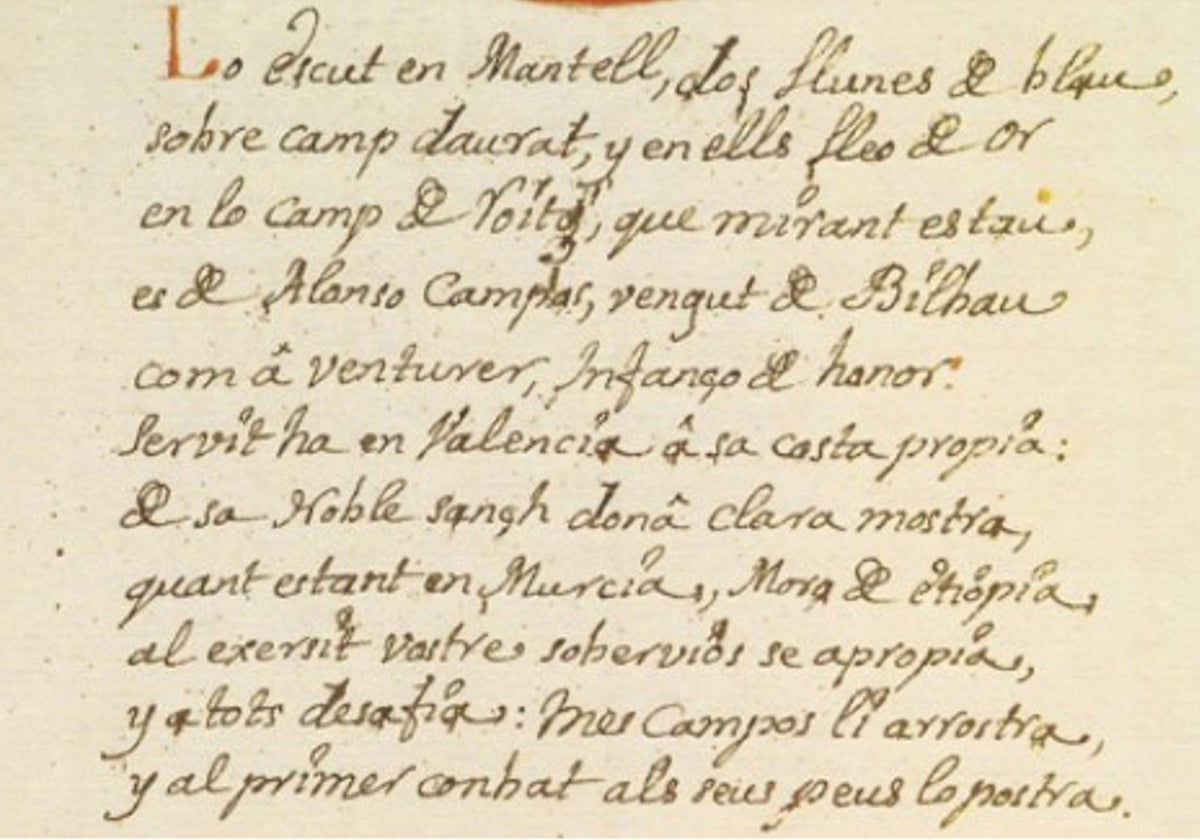 Lo escut en Mantell, dos llunes de blau,
sobre camp daurat, y en ells lleo de or
en lo camp de Roitg, que mirant estau,
es de Alonso Campos, vengut de Bilbau
com â venturer, Infanço de honor.
Servit ha en Valencia â sa costa propia:
de sa Noble sangh donâ clara mostra,
quant estant en Murcia, Moro de etiopia
al exersit vostre soberviôs se apropia,
y a tots desafia: mes Campos li arrostra,
y al primer conbat als seus peus lo postra.